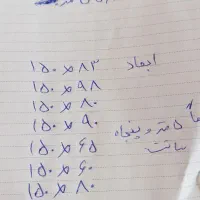 ابعاد ۸۳ × ۱۵۰
۹۸ × ۱۵۰
۸۰ × ۱۵۰
۹۰ × ۱۵۰
۶۵ × ۱۵۰
۶۰ × ۱۵۰
۸۰ × ۱۵۰
متر و پنجاه
سانت